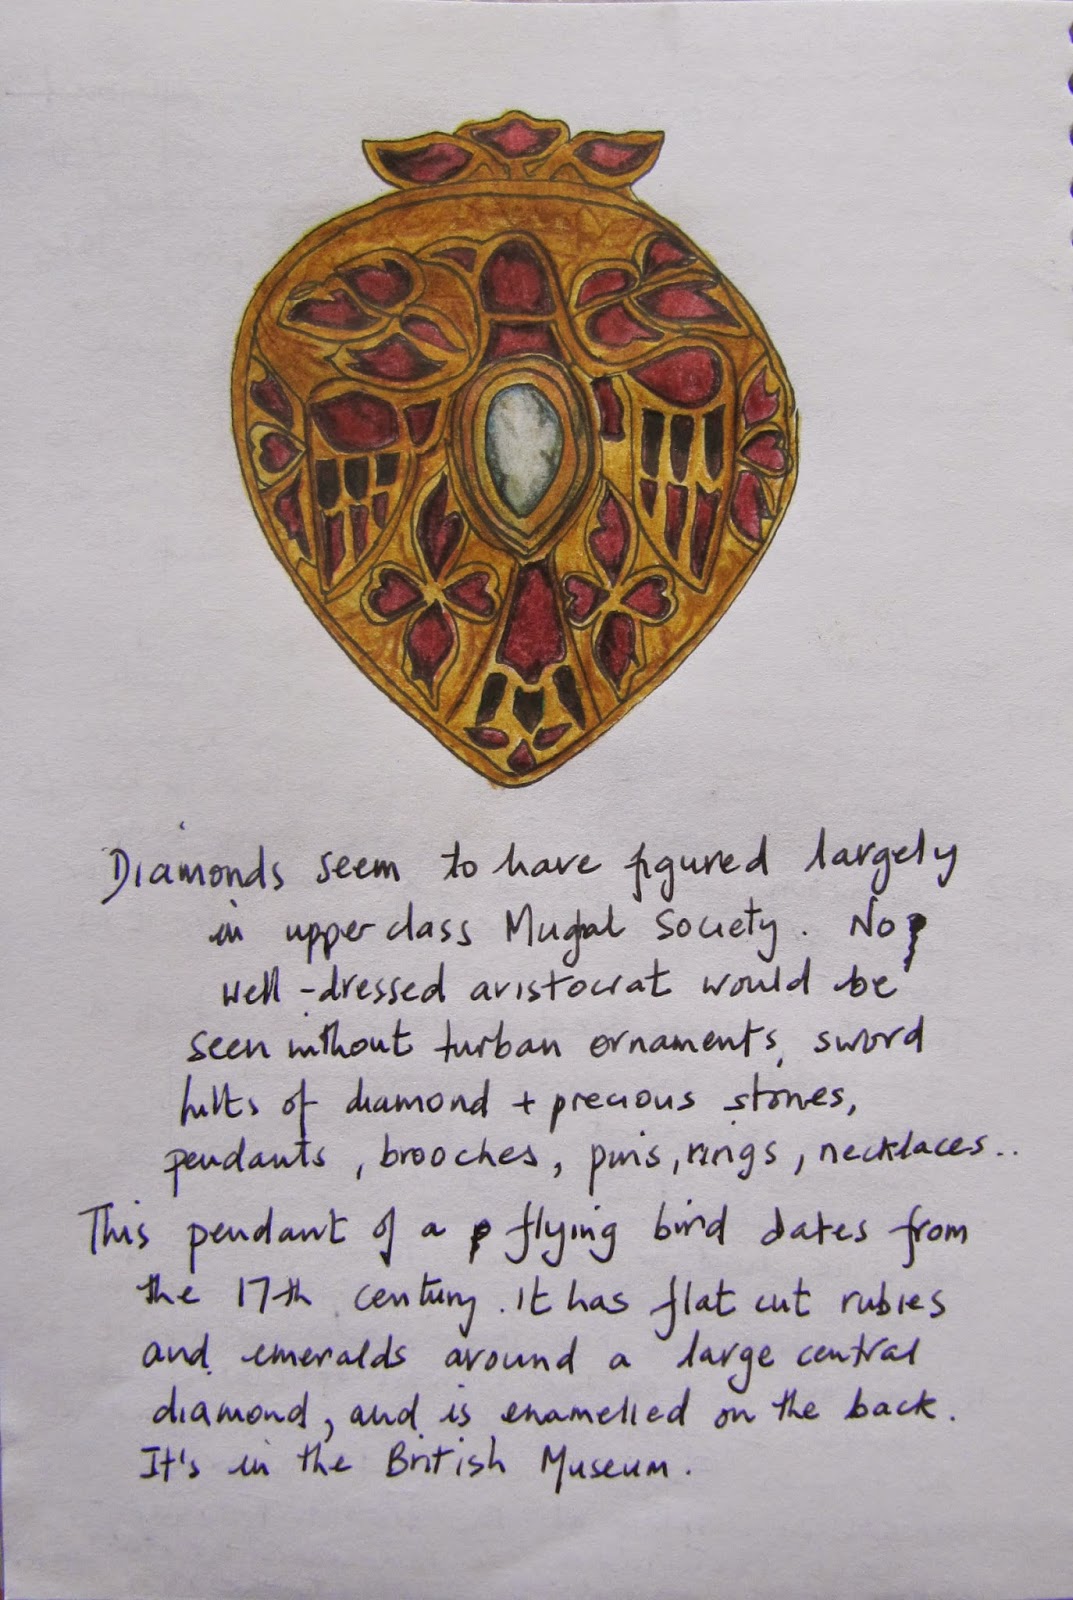 Diamonds seem to have figured largely
in upper class Mugal Society. No
well-dressed aristocrat would be
seen without turban ornaments, sword
hilts of diamond + precious stones,
pendants, brooches, pins, rings, necklaces..
This pendant of a flying bird dates from
the 17th century. It has flat cut rubies
and emeralds around a large central
diamond, and is enamelled on the back.
It's in the British Museum.